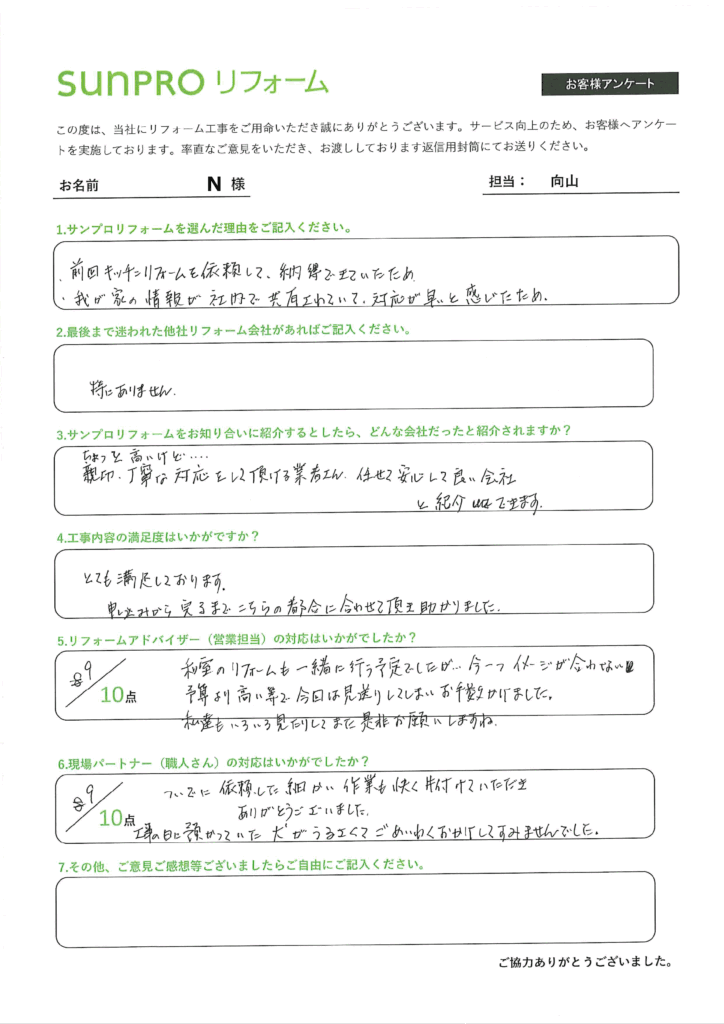 SUNPRO リフォーム
お客様アンケート
この度は、当社にリフォーム工事をご用命いただき誠にありがとうございます。サービス向上のため、お客様へアンケー
トを実施しております。率直なご意見をいただき、お渡ししております返信用封筒にてお送りください。
お名前 N 様
担当： 向山
1.サンプロリフォームを選んだ理由をご記入ください。
・前回キッチンリフォームを依頼して、納得できていたため
・我が家の情報が社内で共有されていて、対応が早いと感じたため.
2.最後まで迷われた他社リフォーム会社があればご記入ください。
特にありません.
3.サンプロリフォームをお知り合いに紹介するとしたら、どんな会社だったと紹介されますか？
ちょっと高いけど‥‥
親切、丁寧な対応をして頂ける業者さん、任せて安心して良い会社
と紹介できます.
4.工事内容の満足度はいかがですか？
とても満足しております.
申し込みから完了までこちらの都合に合わせて頂き助かりました.
5.リフォームアドバイザー（営業担当）の対応はいかがでしたか？
9
10点
和室のリフォームも一緒に行う予定でしたが…今一つイメージが合わない
予算より高い等で今回は見送りしてしまいお手数かけました。
私達もいろいろ見たりしてまた是非お願いしますね.
6.現場パートナー（職人さん）の対応はいかがでしたか？
9
10点
ついでに依頼した細かい作業も快く片付けていただき
ありがとうございました.
工事の日に預かっていた犬がうるさくてごめいわくおかけしてすみませんでした.
7.その他、ご意見ご感想等ございましたらご自由にご記入ください。
ご協力ありがとうございました。